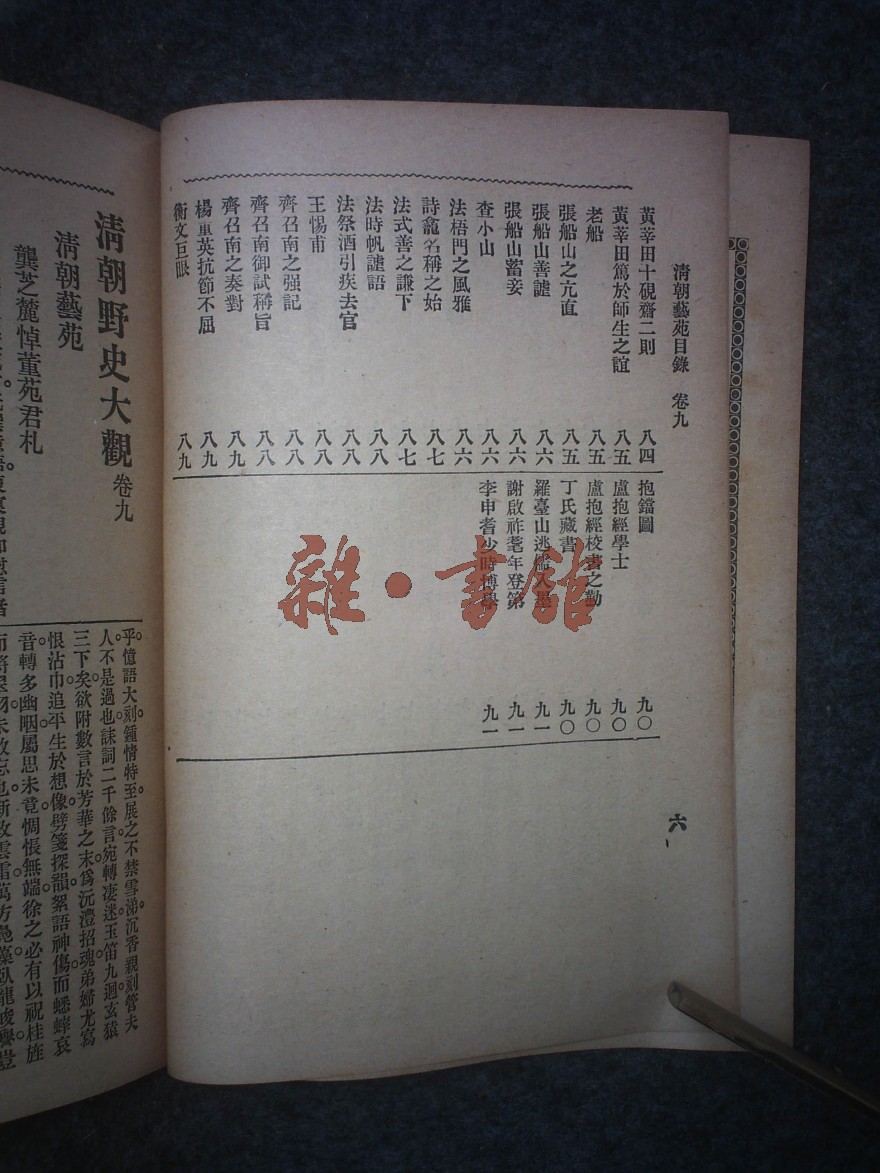 清朝藝苑目錄 卷九
黃莘田十硯齋二則 八四
黃莘田篤於師生之誼 八五
老船 八五
張船山之亢直 八五
張船山善謔 八六
張船山蓄妾 八六
查小山 八六
法梧門之風雅 八六
詩龕名稱之始 八七
法式善之謙下 八七
法時帆謔語 八八
法祭酒引疾去官 八八
王惕甫 八八
齊召南之强記 八八
齊召南御試稱旨 八八
齊召南之奏對 八九
楊重英抗節不屈 八九
衡文巨眼 八九
抱鐺圖 九〇
盧抱經學士 九〇
盧抱經校書之勤 九〇
丁氏藏書 九〇
羅臺山逃儒入墨 九一
謝啟祚耄年登第 九一
李申耆少時博學 九一
六
雜·書館
清朝野史大觀 卷九
清朝藝苑
龔芝麓悼董苑君札
乎。憶語大刻。鍾情特至。展之不禁雪涕。沉香親刻管夫
人。不是過也。誄詞二千餘言。宛轉凄迷。玉笛九迴。玄猿
三下矣。欲附數言於芳華之末。爲沅澧招魂。弟婦尤寫
恨沾巾。追平生於想像。劈箋探韻。絮語神傷。而蟋蟀哀
音。轉多幽咽。屬思未竟。惆悵無端。徐之必有以祝桂旌